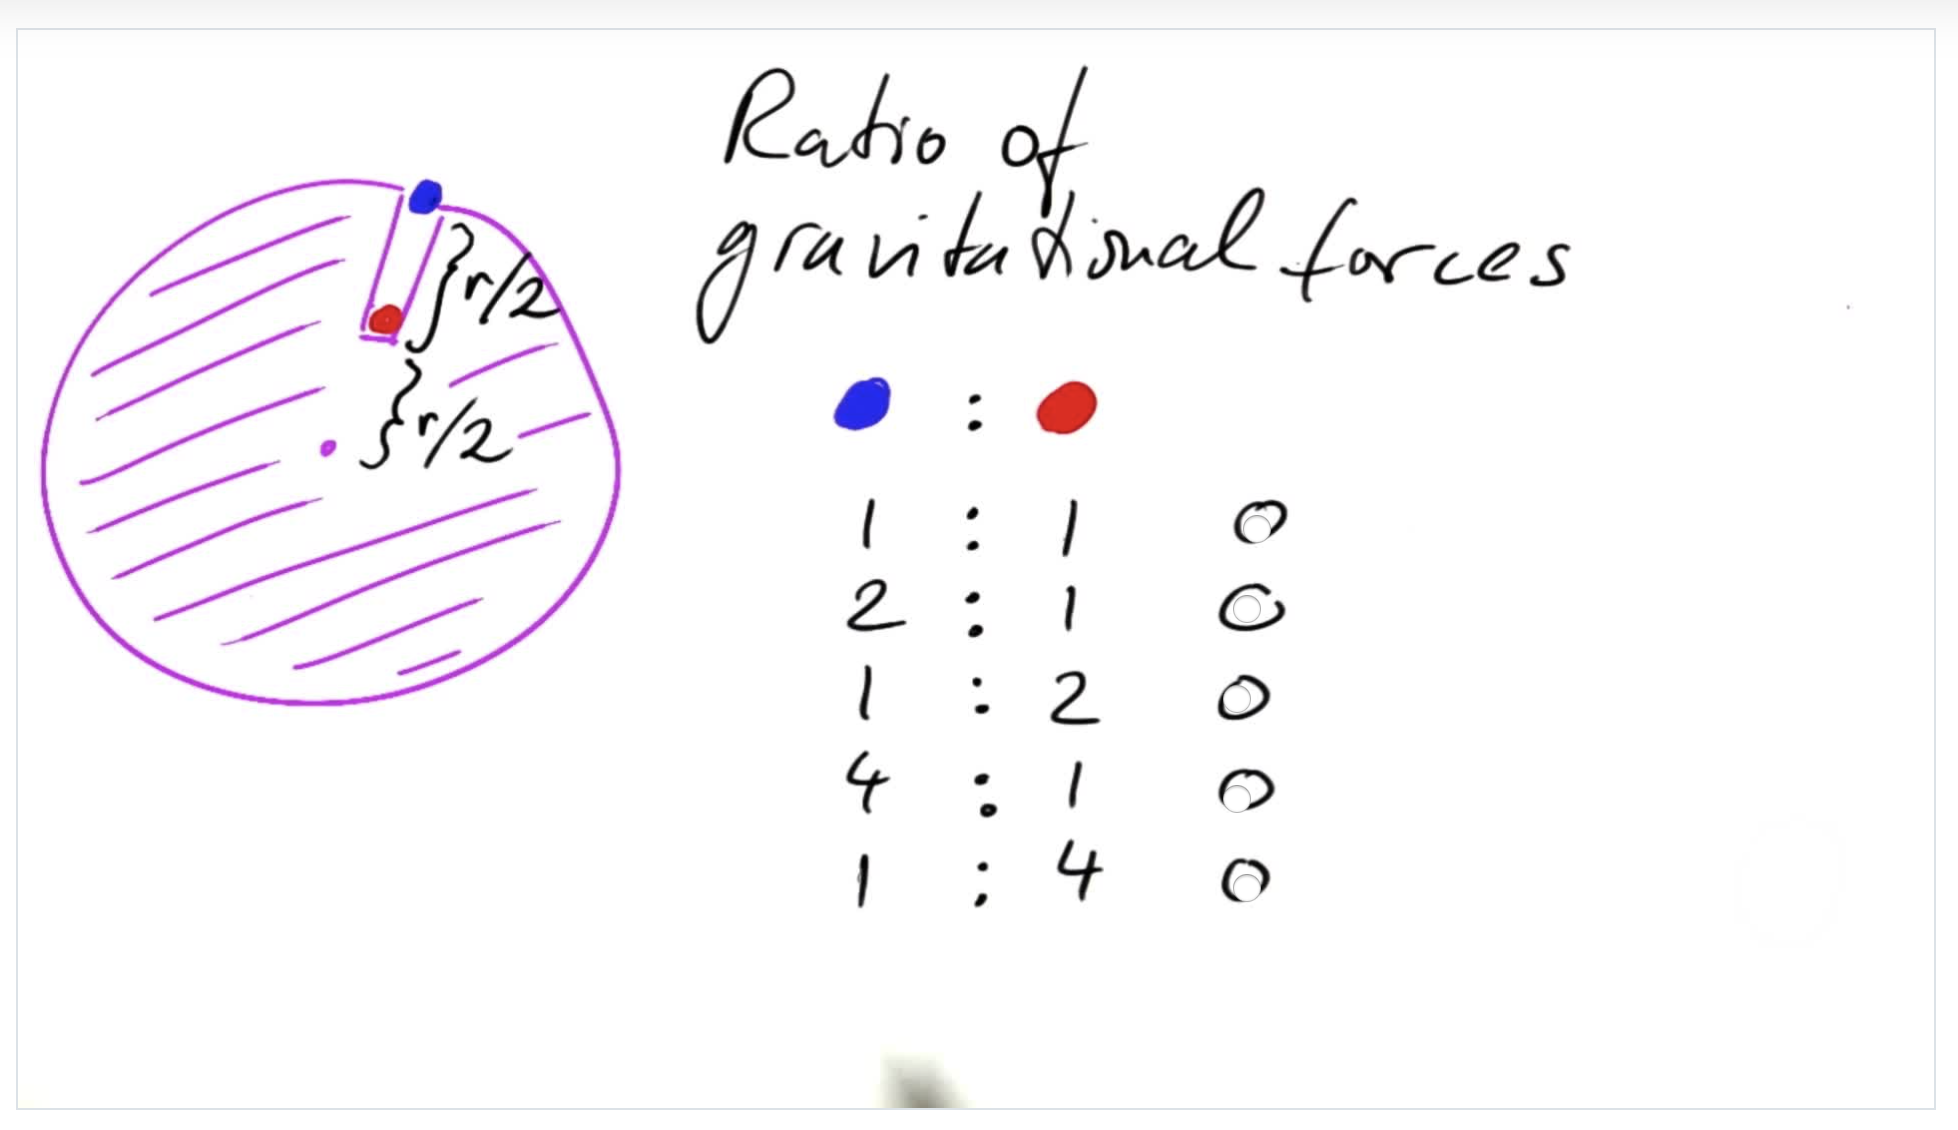 Ratio of
gravitational forces
r/2
r/2
:
1 : 1
2 : 1
1 : 2
4 : 1
1 : 4